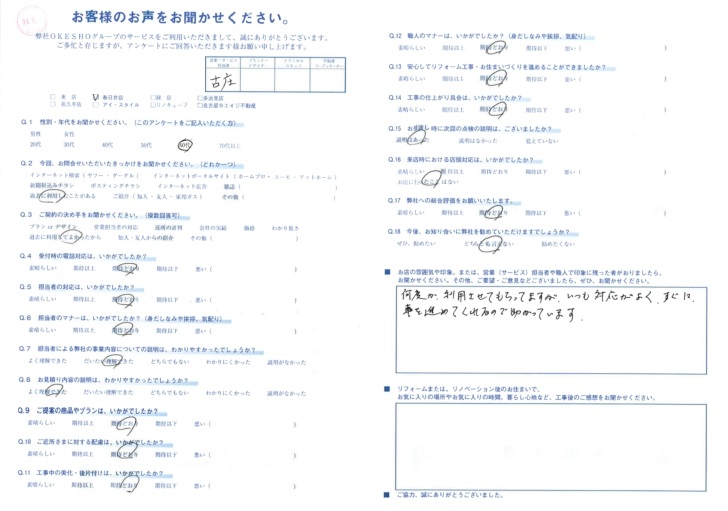 お客様のお声をお聞かせください。
弊社OKESHOグループのサービスをご利用いただきまして、誠にありがとうございます。
ご多忙と存じますが、アンケートにご回答いただきます様お願い申し上げます。
古庄
東店 春日井店 緑店 多治見店
名古屋市エイジ不動産
Q.1 性別・年代をお聞かせください。(このアンケートをご記入いただく方)
男性 女性
20代 30代 40代 50代 60代 70代以上
Q.2 今回、お問合せいただいたきっかけをお聞かせください。(どれか一つ)
インターネット検索(ヤフー・グーグル) インターネットポータルサイト(ホームプロ・スーモ・アットホーム)
新聞折込みチラシ ポスティングチラシ インターネット広告 雑誌( )
過去に利用したことがある ご紹介(知人・友人・家庭ガス) その他( )
Q.3 ご契約の決め手をお聞かせください。(複数回答可)
プラン or デザイン 営業担当者の対応 会社の実績 価格 わかり易さ
過去に利用してよかったから 知人・友人からの紹介 その他( )
Q.4 受付時の電話対応は、いかがでしたか?
素晴らしい 期待以上 期待どおり 期待以下 悪い(
Q.5 担当者の対応は、いかがでしたか?
素晴らしい 期待以上 期待どおり 期待以下 悪い(
Q.6 担当者のマナーは、いかがでしたか?(身だしなみや挨拶、気配り)
素晴らしい 期待以上 期待どおり 期待以下 悪い(
Q.7 担当者による弊社の事業内容についての説明は、わかりやすかったでしょうか?
よく理解できた だいたい理解できた どちらでもない わかりにくかった 説明がなかった
Q.8 お見積り内容の説明は、わかりやすかったでしょうか?
よく理解できた だいたい理解できた どちらでもない わかりにくかった 説明がなかった
Q.9 ご提案の商品やプランは、いかがでしたか?
素晴らしい 期待以上 期待どおり 期待以下 悪い(
Q.10 ご近所さまに対する配慮は、いかがでしたか?
素晴らしい 期待以上 期待どおり 期待以下 悪い(
Q.11 工事中の美化・後片付けは、いかがでしたか?
素晴らしい 期待以上 期待どおり 期待以下 悪い(
Q.12 職人のマナーは、いかがでしたか?(身だしなみや挨拶、気配り)
素晴らしい 期待以上 期待どおり 期待以下 悪い( )
Q.13 安心してリフォーム工事・お住まいづくりを進めることができましたか?
素晴らしい 期待以上 期待どおり 期待以下 悪い( )
Q.14 工事の仕上がり具合は、いかがでしたか?
素晴らしい 期待以上 期待どおり 期待以下 悪い( )
Q.15 お引渡し時に次回の点検の説明は、ございましたか?
説明はあった 説明はなかった 覚えていない
Q.16 来店時における店頭対応は、いかがでしたか?
素晴らしい 期待以上 期待どおり 期待以下 悪い( )
お店に行ったことはない
Q.17 弊社への総合評価をお願いいたします。
素晴らしい 期待以上 期待どおり 期待以下 悪い( )
Q.18 今後、お知り合いに弊社を勧めていただけますでしょうか?
ぜひ、勧めたい どちらとも言えない 勧めたくない
■ お店の雰囲気や印象。または、営業(サービス)担当者や職人で印象に残った者がおりましたら、
お聞かせください。その他、ご要望・ご意見などございましたら、ぜひ、お聞かせください。
何度か利用させてもらってますが、いつも対応がよく、すぐに
事を進めてくれるので助かっています。
■ リフォームまたは、リノベーション後のお住まいで、
お気に入りの場所やお気に入りの時間、暮らし心地など、工事後のご感想をお聞かせください。
■ ご協力、誠にありがとうございました。